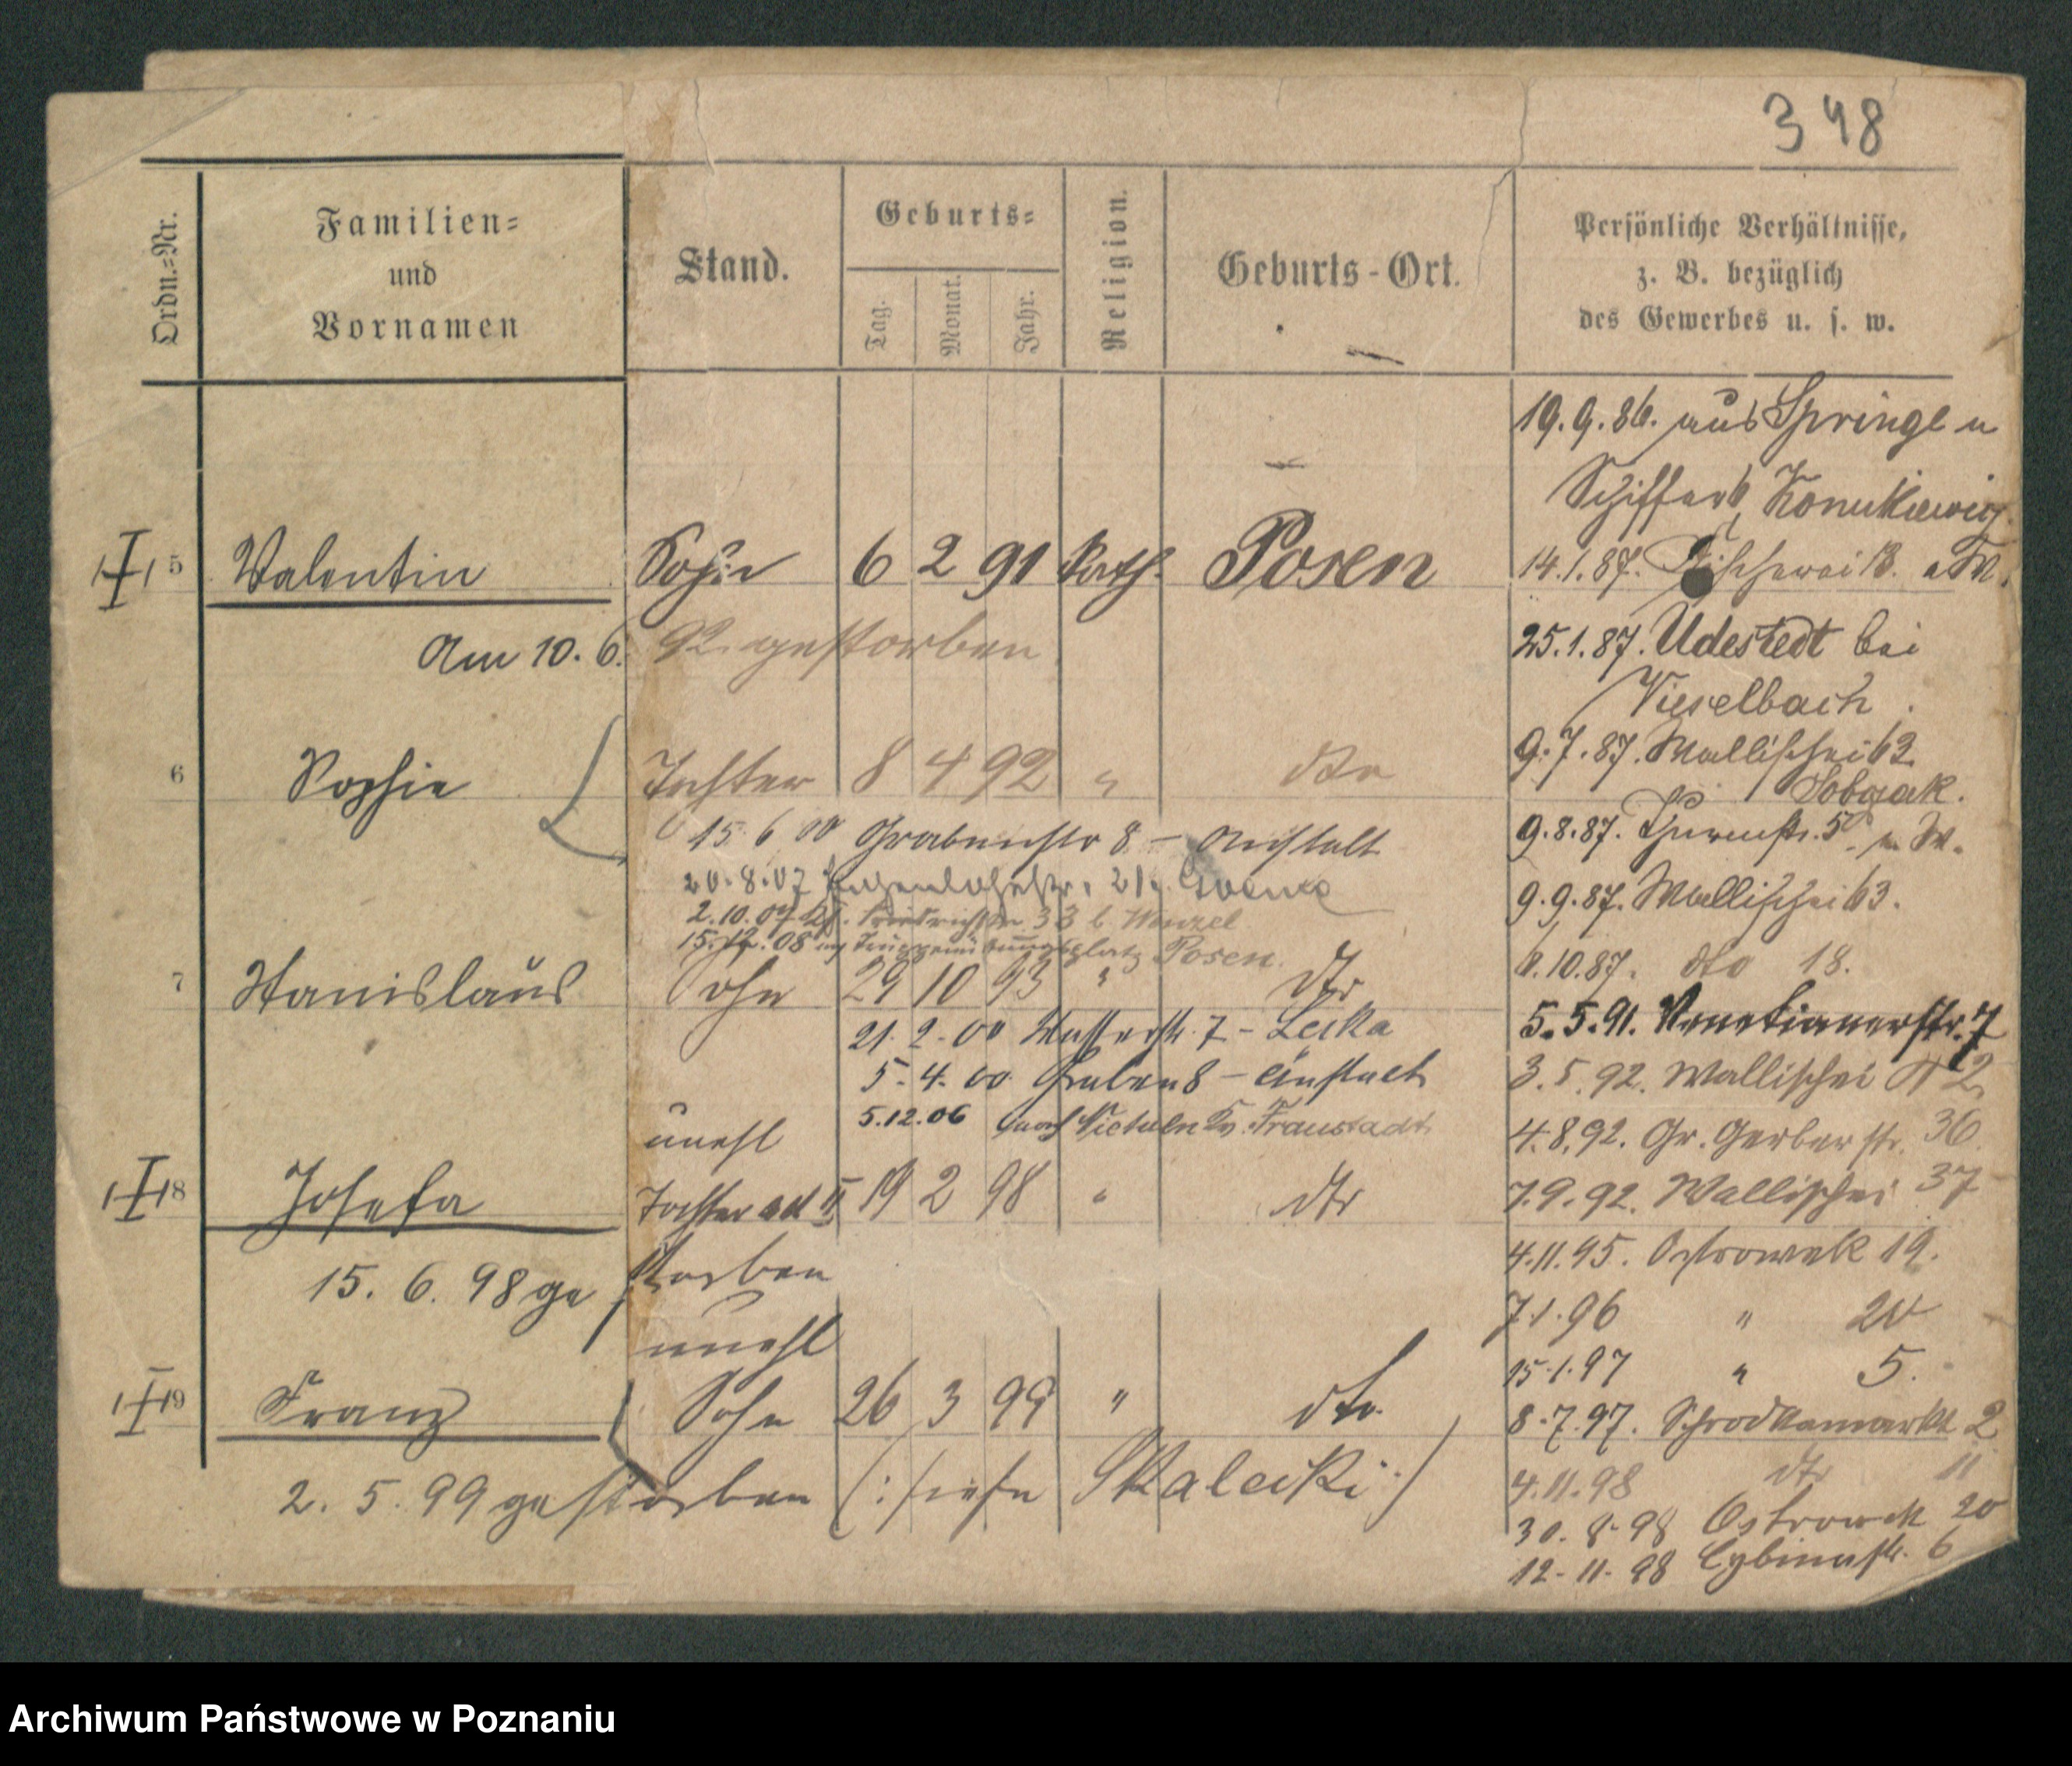 348
Ordn.=Nr.
Familien=
und
Vornamen
Stand.
Geburts=
Tag.
Monat.
Jahr.
Religion.
Geburts-Ort.
Persönliche Verhältnisse,
z. B. bezüglich
des Gewerbes u. s. w.
5 Valentin Sohn 6 2 91 Kath. Posen
Am 10. 6. 92 gestorben
6 Sophie Tochter 8 4 92 " dto
15. 6 00 Grabenstr 8 - Anstalt
20.8.07
2.10.07 Friedrichstr. 33 b. Wenzel
15.12.08 Truppenübungsplatz Posen.
7 Stanislaus Sohn 29 10 93 " dto
21. 2. 00 Wasserstr. 7 - Leika
5. 4. 00. Graben 8 - Anstalt
5.12.06 nach Kr. Fraustadt
unehl
8 Josefa Tochter ad II 19 2 98 " dto
15. 6. 98 gestorben
unehl
9 Franz Sohn 26 3 99 " dto.
2. 5. 99 gestorben (: siehe Skalecki :)
19.9.86. aus
Schiffer
14.1.87. Fischerei 13.
25.1.87. Udestedt bei
Vieselbach.
9.7.87. Wallischei 63
Sobczak.
9.8.87. Thurmstr. 5
9.9.87. Wallischei 63.
10.87. dto 18.
5.5.91. Venetianerstr. 7
3.5.92. Wallischei 72
4.8.92. Gr. Gerberstr. 36
7.9.92. Wallischei 37
4.11.95. Ostrowek 19.
7.1.96 " 20
15.1.97 " 5.
8.7.97. Schrodkamarkt 2
4.11.98 dto 11
30.8.98 Ostrowek 20
12.11.98 Cybinastr. 6
Archiwum Państwowe w Poznaniu